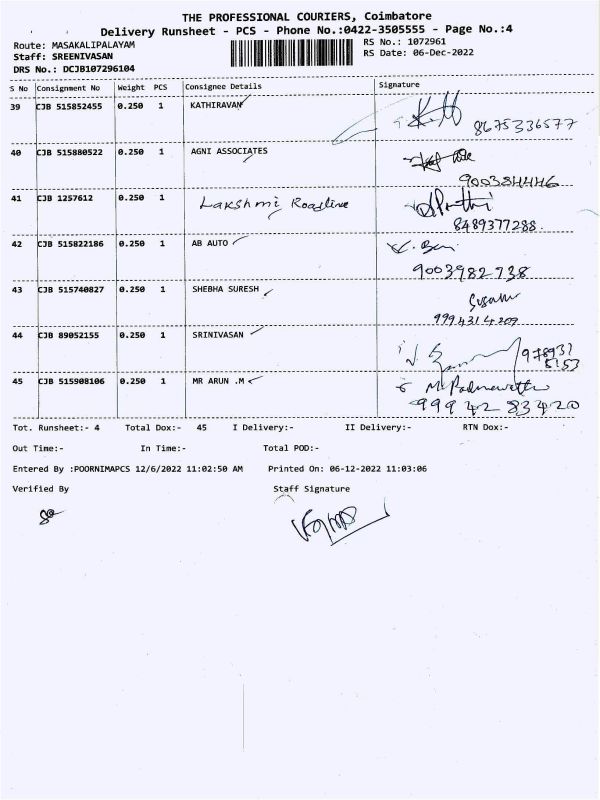 THE PROFESSIONAL COURIERS, Coimbatore
Delivery Runsheet - PCS - Phone No.:0422-3505555 - Page No.:4
Route: MASAKALIPALAYAM RS No.: 1072961
Staff: SREENIVASAN RS Date: 06-Dec-2022
DRS No.: DCJB107296104
S No Consignment No Weight PCS Consignee Details Signature
39 CJB 515852455 0.250 1 KATHIRAVAN
8675336577
40 CJB 515880522 0.250 1 AGNI ASSOCIATES
9003844446
41 CJB 1257612 0.250 1 Lakshmi Roadline
8489377288
42 CJB 515822186 0.250 1 AB AUTO
9003982738
43 CJB 515740827 0.250 1 SHEBHA SURESH
9994314209
44 CJB 89052155 0.250 1 SRINIVASAN
45 CJB 515908106 0.250 1 MR ARUN .M
99942 83420
Tot. Runsheet:- 4 Total Dox:- 45 I Delivery:- II Delivery:- RTN Dox:-
Out Time:- In Time:- Total POD:-
Entered By :POORNIMAPCS 12/6/2022 11:02:50 AM Printed On: 06-12-2022 11:03:06
Verified By Staff Signature